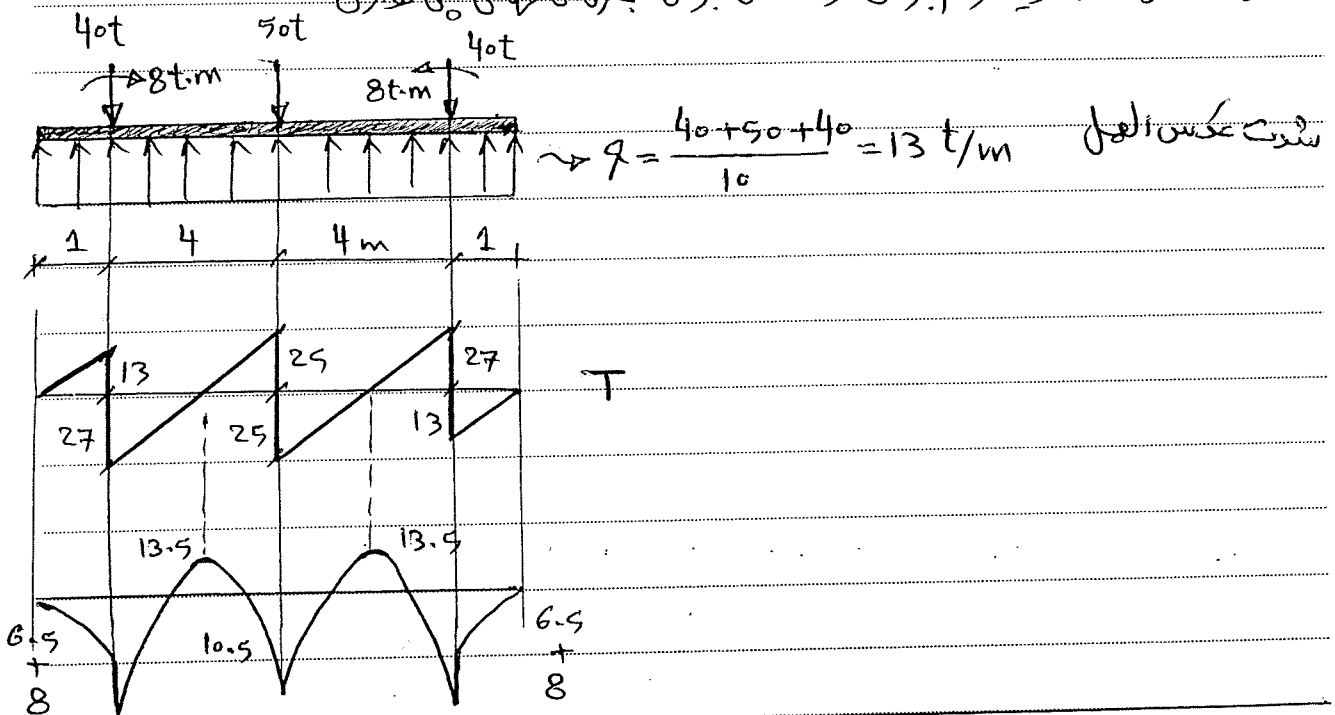 40t 50t 40t
8t.m 8t.m
q = (40+50+40)/10 = 13 t/m شدت عکس العمل
1 4 4 m 1
13 25 27 T
27 25 13
13.5 13.5
6.5 10.5 6.5
+ +
8 8